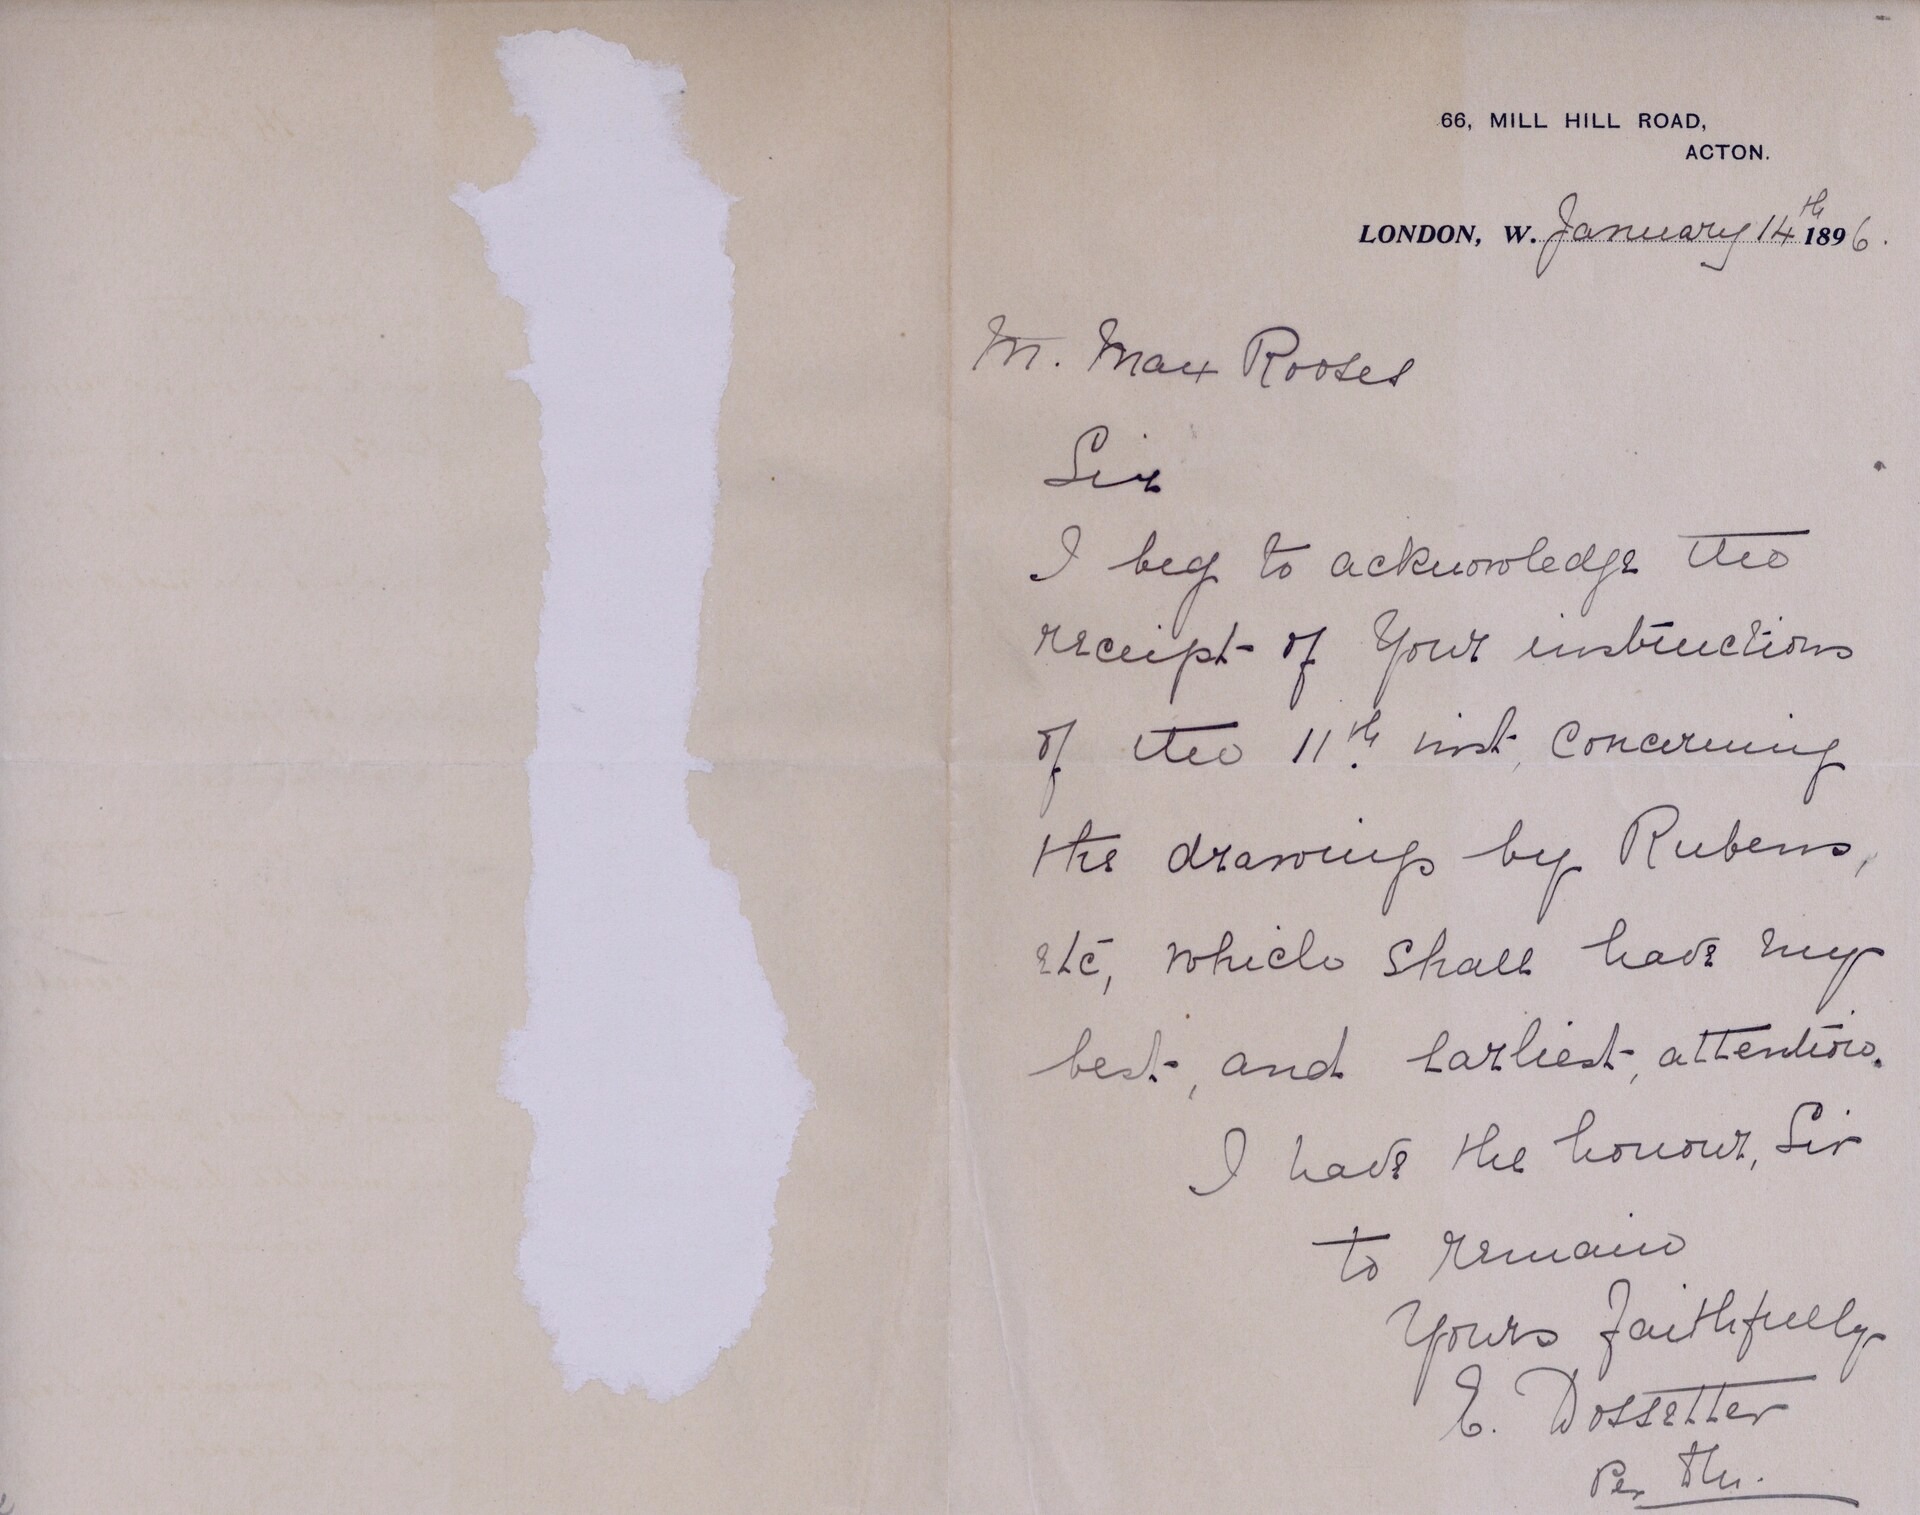 66, MILL HILL ROAD,
ACTON.
LONDON, W. January 14th 1896.
M. Max Rooses
Sir
I beg to acknowledge the
receipt of Your instructions
of the 11th inst, concerning
the drawings by Rubens,
etc, which shall have my
best, and earliest, attention.
I have the honour, Sir
to remain
Yours faithfully
E. Dossetter
Per